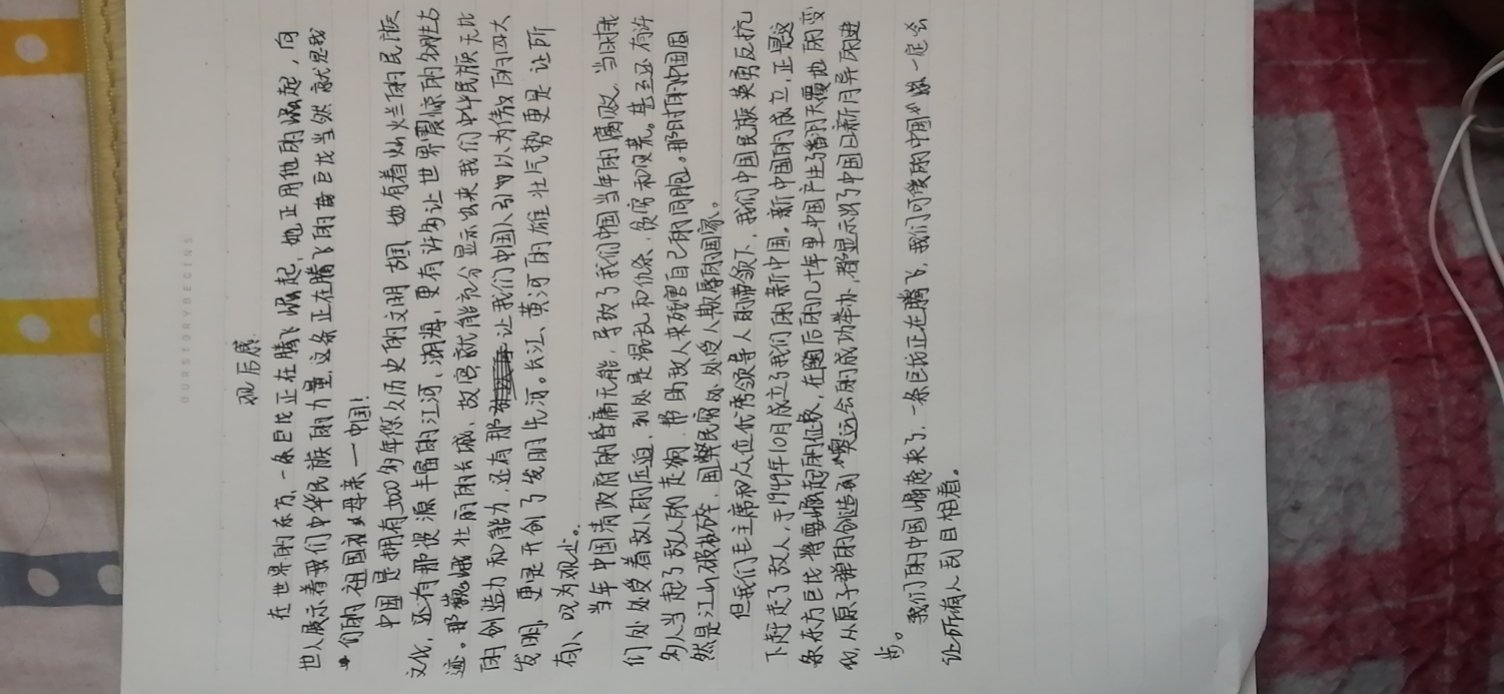 OURSTORYBEGINS
观后感
在世界的东方,一条巨龙正在腾飞崛起,她正用他的崛起,向
世人展示着我们中华民族的力量,这条正在腾飞的巨龙当然就是我
们的祖国母亲—中国!
中国是拥有5000多年悠久历史的文明古国,她有着灿烂的民族
文化,还有那资源丰富的江河、湖海,更有许多让世界震惊的名胜古
迹。那巍峨壮丽的长城、故宫就能充分显示出来我们中华民族无比
的创造力和能力,还有那让我们中国人引以为傲的四大
发明,更是开创了发明先河。长江、黄河的雄壮气势更是让所
有人叹为观止。
当年中国清政府的昏庸无能,导致了我们中国当年的腐败,当时我
们处处受着敌人的压迫,到处是混乱和仇杀,贫穷和饥荒。甚至还有许
多人当起了敌人的走狗,帮助敌人来残害自己的同胞。那时的中国固
然是江山被破碎,国弊民穷处处受人欺辱的国家。
但我们毛主席和众位优秀领导人的带领下,我们中国民族英勇反抗
下赶走了敌人,于1949年10月成立了我们的新中国。新中国的成立,正是这
条东方巨龙将要崛起的征象,在随后的几十年里中国产生了翻天覆地的变
化,从原子弹的创造到奥运会的成功举办,都显示出了中国日新月异的进
步。
我们的中国崛起来了,一条巨龙正在腾飞,我们可爱的中国必将一定会
让所有人刮目相看。